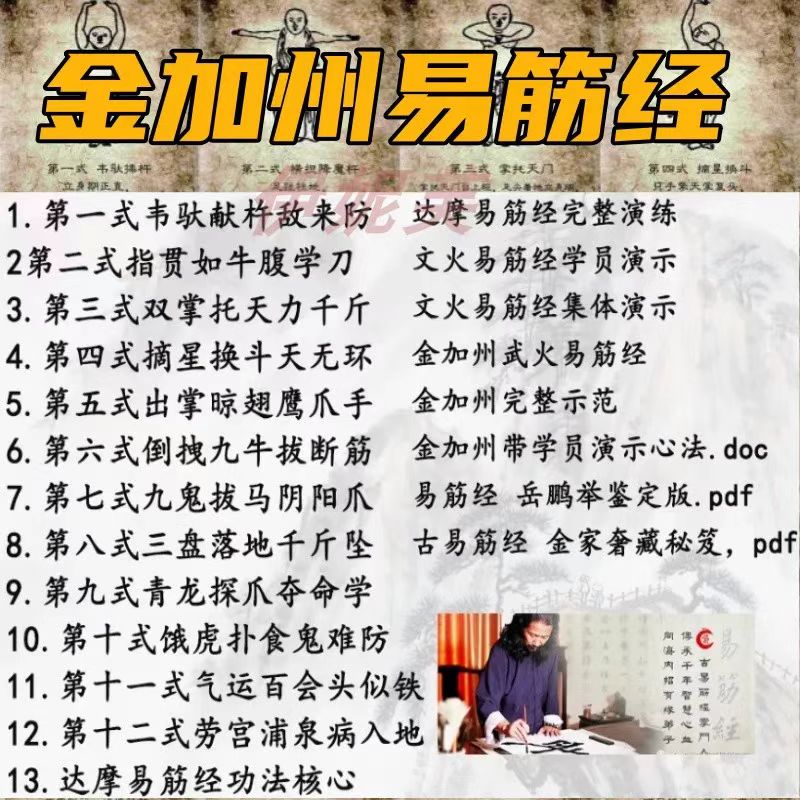 金加州易筋经
第一式 韦驮捧杵
立身期正直,
第二式 横担降魔杵
足趾拄地,
第三式 掌托天门
掌托天门目上观,足尖着地立身端,
第四式 摘星换斗
只手擎天掌复头,
伊妮美
1.第一式韦驮献杵敌来防
2第二式指贯如牛腹学刀
3.第三式双掌托天力千斤
4.第四式摘星换斗天无环
5.第五式出掌晾翅鹰爪手
6.第六式倒拽九牛拔断筋
7.第七式九鬼拔马阴阳爪
8.第八式三盘落地千斤坠
9.第九式青龙探爪夺命学
10.第十式饿虎扑食鬼难防
11.第十一式气运百会头似铁
12.第十二式劳宫浦泉病入地
13.达摩易筋经功法核心
达摩易筋经完整演练
文火易筋经学员演示
文火易筋经集体演示
金加州武火易筋经
金加州完整示范
金加州带学员演示心法.doc
易筋经 岳鹏举鉴定版.pdf
古易筋经 金家奢藏秘笈,pdf
易筋经
古易筋經掌門人
傳承千年智慧心血